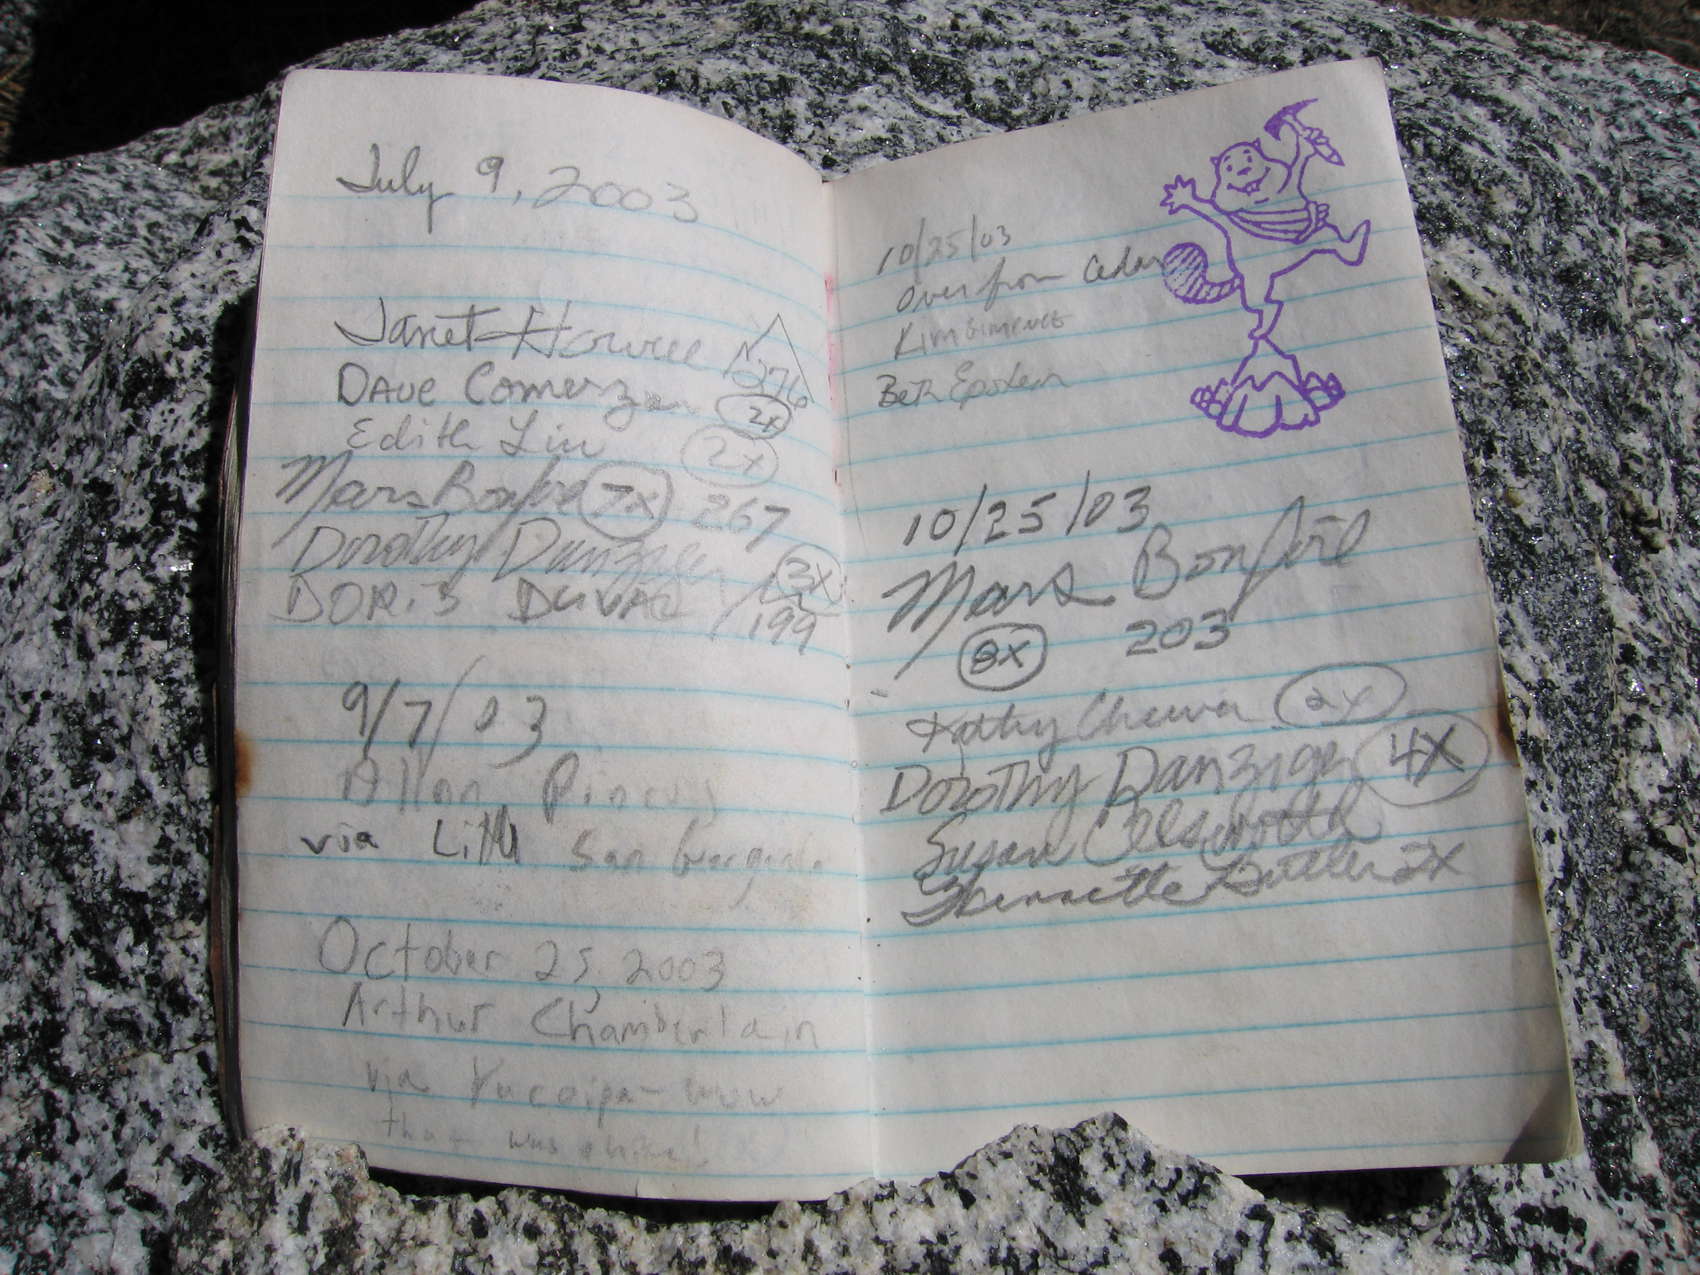 July 9, 2003
Janet Howell
N 376
DAVE Comerzan 2x
Edith Liu 2x
Mars Bonfire 7x 267
Dorothy Danziger 3x
DORIS DUVAL 199
9/7/03
Allan Pincus
via Little San Gorgonio
October 25, 2003
Arthur Chamberlain
via Yucaipa - wow
that was
10/25/03
Over from Cedar
Kim
Beth Epstein
10/25/03
Mars Bonfire
8x 203
Kathy Cheever 2x
Dorothy Danziger 4X
Susan
2X